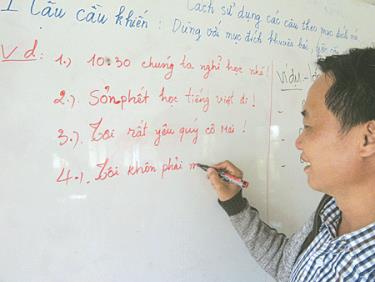 I Câu cầu khiến :
Cách sử dụng các câu theo mục đích nói
Dùng với mục đích khuyên bảo,
Vd:
1.) 10:30 chúng ta nghỉ học nhé!
2.) Sổnphết học tiếng việt đi!
3.) Tôi rất yêu quý cô Mai!
4.) Tôi khôn phải m
Ví dụ